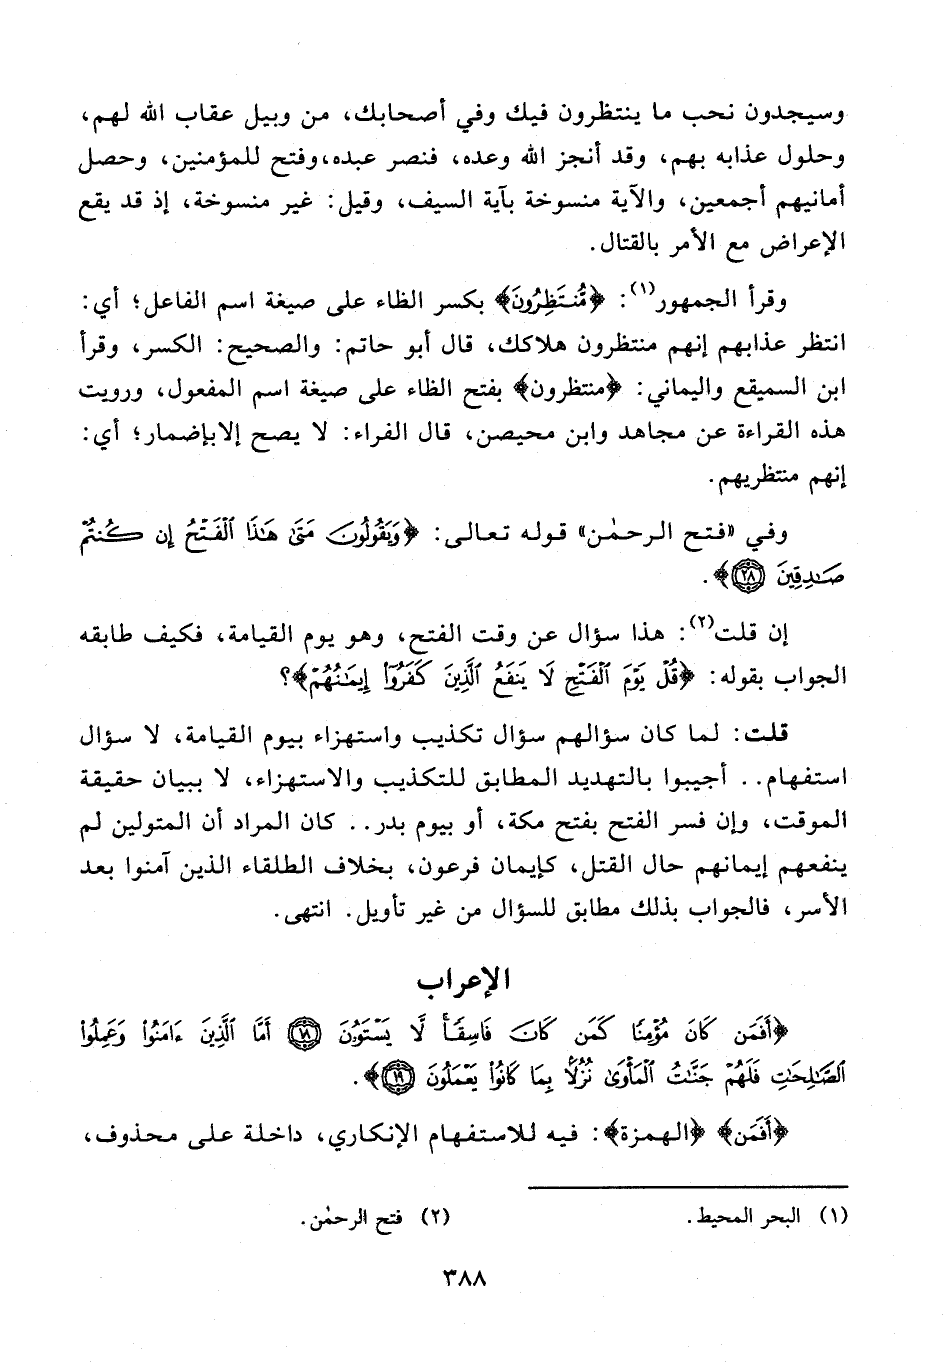 وسيجدون نحب ما ينتظرون فيك وفي أصحابك، من وبيل عقاب الله لهم،
وحلول عذابه بهم، وقد أنجز الله وعده، فنصر عبده،وفتح للمؤمنين، وحصل
أمانيهم أجمعين، والآية منسوخة بآية السيف، وقيل: غير منسوخة، إذ قد يقع
الإعراض مع الأمر بالقتال.
وقرأ الجمهور(١): ﴿مُّنتَظِرُونَ﴾ بكسر الظاء على صيغة اسم الفاعل؛ أي:
انتظر عذابهم إنهم منتظرون هلاكك، قال أبو حاتم: والصحيح: الكسر، وقرأ
ابن السميقع واليماني: ﴿منتظرون﴾ بفتح الظاء على صيغة اسم المفعول، ورويت
هذه القراءة عن مجاهد وابن محيصن، قال الفراء: لا يصح إلابإضمار؛ أي:
إنهم منتظريهم.
وفي «فتح الرحمٰن» قوله تعالى: ﴿وَيَقُولُونَ مَتَىٰ هَٰذَا ٱلْفَتْحُ إِن كُنتُمْ
صَٰدِقِينَ ٢٨﴾.
إن قلت(٢): هذا سؤال عن وقت الفتح، وهو يوم القيامة، فكيف طابقه
الجواب بقوله: ﴿قُلْ يَوْمَ ٱلْفَتْحِ لَا يَنفَعُ ٱلَّذِينَ كَفَرُوٓا۟ إِيمَٰنُهُمْ﴾؟
قلت: لما كان سؤالهم سؤال تكذيب واستهزاء بيوم القيامة، لا سؤال
استفهام.. أجيبوا بالتهديد المطابق للتكذيب والاستهزاء، لا ببيان حقيقة
الموقت، وإن فسر الفتح بفتح مكة، أو بيوم بدر.. كان المراد أن المتولين لم
ينفعهم إيمانهم حال القتل، كإيمان فرعون، بخلاف الطلقاء الذين آمنوا بعد
الأسر، فالجواب بذلك مطابق للسؤال من غير تأويل. انتهى.
الإعراب
﴿أَفَمَن كَانَ مُؤْمِنًا كَمَن كَانَ فَاسِقًا ۚ لَّا يَسْتَوُۥنَ ١٨ أَمَّا ٱلَّذِينَ ءَامَنُوا۟ وَعَمِلُوا۟
ٱلصَّٰلِحَٰتِ فَلَهُمْ جَنَّٰتُ ٱلْمَأْوَىٰ نُزُلًۢا بِمَا كَانُوا۟ يَعْمَلُونَ ١٩﴾.
﴿أَفَمَن﴾ ﴿الهمزة﴾: فيه للاستفهام الإنكاري، داخلة على محذوف،
(١) البحر المحيط. (٢) فتح الرحمٰن.
٣٨٨